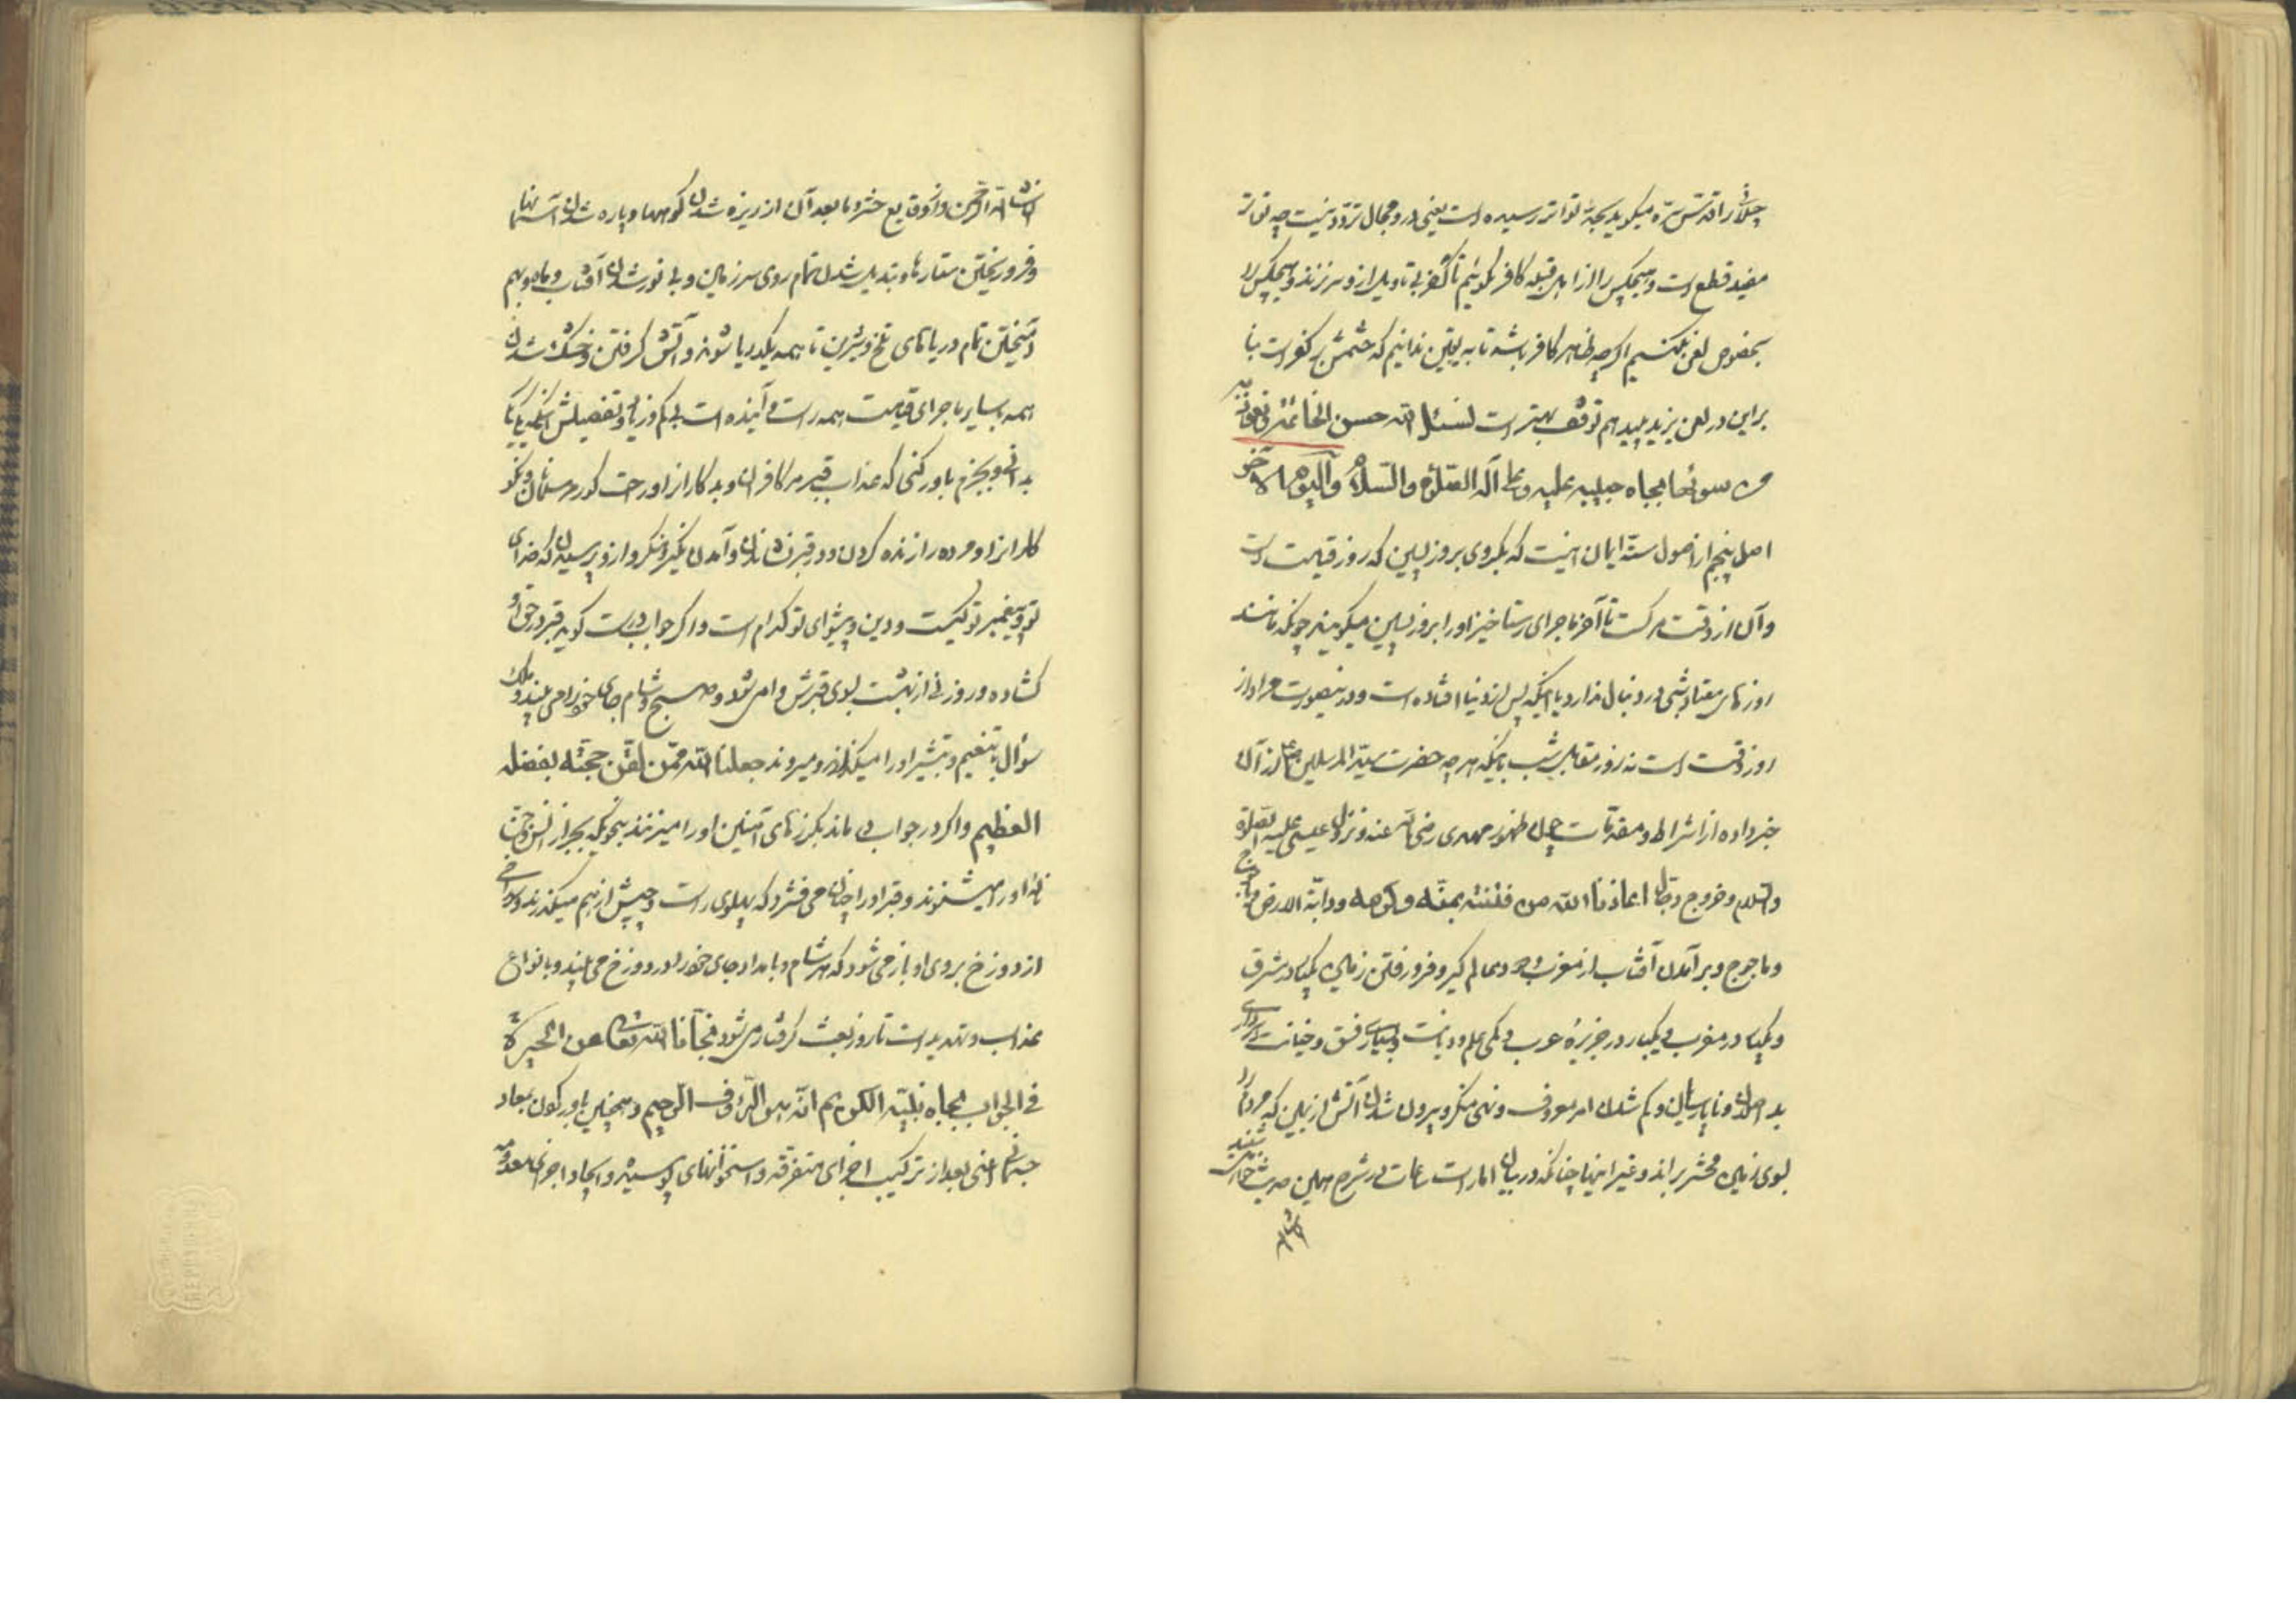 جلال را قدس سره میکوید بحد تواتر رسیده است یعنی درو مجال تردد نیست چه تواتر
مفید قطع است و هیچکس را از اهل قبله کافر نکوئیم تا کفر بی تاویل ازو سر نزند و هیچکس را
بخصوص لعن نکنیم اکرچه ظاهر کافر باشد تا به یقین ندانیم که ختمش بر کفر است بنا
براین در لعن یزید پلید هم توقف بهتر است نسئل الله حسن الخاتمة و نعوذ به
من سوئها بجاه حبیبه علیه وعلی آله الصلوة والسلام والیوم الآخر
اصل پنجم از اصول ستۀ ایمان اینست که بکروی بروز پسین که روز قیامت است
وآن از وقت مرکست تا آخر ماجرای رستاخیز اورا بروز پسین میکویند چونکه مانند
روزهای معتاد شبی در دنبال ندارد یا آنکه پس از دنیا افتاده است ودرینصورت مراد از
روز وقت است نه روز مقابل شب بآنکه هرچه حضرت سید المرسلین از آن
خبر داده از اشراط و مقدمات چون ظهور مهدی رضی الله عنه و نزول عیسی علیه الصلوة
والسلام وخروج دجال اعاذنا الله من فتنته بمنه وکرمه ودابة الارض ویاجوج
وماجوج وبرآمدن آفتاب از مغرب ودود عالم کیر وفرو رفتن زمین یکبار در مشرق
ویکبار در مغرب ویکبار در جزیرۀ عرب وکمی علم ودیانت وبسیاری فسق وخیانت وسرداری
بد اصلان وناپارسایان وکم شدن امر معروف ونهی منکر وبیرون شدن آتش از یمن که مردمانرا
بسوی زمین محشر براند وغیر اینها چنانکه در بیان امارات ساعت در شرح همین حدیث خواست شنید
انشاالله
انشاالله الرحمن واز وقایع حشر وما بعد آن از ریزه شدن کوهها وپاره شدن آسمانها
وفرو ریختن ستارها وتبدیل شدن تمام روی سرزمین وبی نور شدن آفتاب وماه وبهم
آمیختن تمام دریاهای تلخ وشیرین تا همه یکدریا شوند وآتش کرفتن وخشک شدن
همه وسایر ماجرای قیامت همه راست وآینده است بی کم وزیاد وتفصیلش
بدانی وبجزم باور کنی که عذاب قبر مر کافران وبدکارانرا وراحت کور مر مسلمان ونکو
کارانرا ومرده را زنده کردن ودر قبر نشاندن وآمدن نکیر ومنکر وازو پرسیدن که خدای
تو وپیغمبر تو کیست ودین وپیشوای تو کدام است واکر جواب درست کوید قبر در حق او
کشاده وروزنی از بهشت بسوی قبرش وا می شود وصبح وشام جای خودرا می بیند وملک
سؤال بتنعیم وتبشیر اورا میکذارند ومیروند جعلنا الله ممن لقن حجته بفضله
العظیم واکر در جواب می ماند بکرزهای آتشین اورا میزنند بنحویکه بجز از انس وجن
نالۀ اورا میشنوند وقبر اورا چنان می فشرد که پهلوی راست وچپش از هم میکذرند وسوراخی
از دوزخ بروی او باز می شود که هر شام وبامداد جای خودرا در دوزخ می بیند وبانواع
عذاب وتهدیدات تا روز بعث کرفتار می شود نجانا الله تعالی عن الحیرة
فی الجواب بجاه نبیه الکریم انه هو الرؤف الرحیم وهمچنین باور کردن بمعاد
جسمانی اعنی بعد از ترکیب اجزای متفرقه واستخوانهای پوسیده وایجاد اجزای معدومه